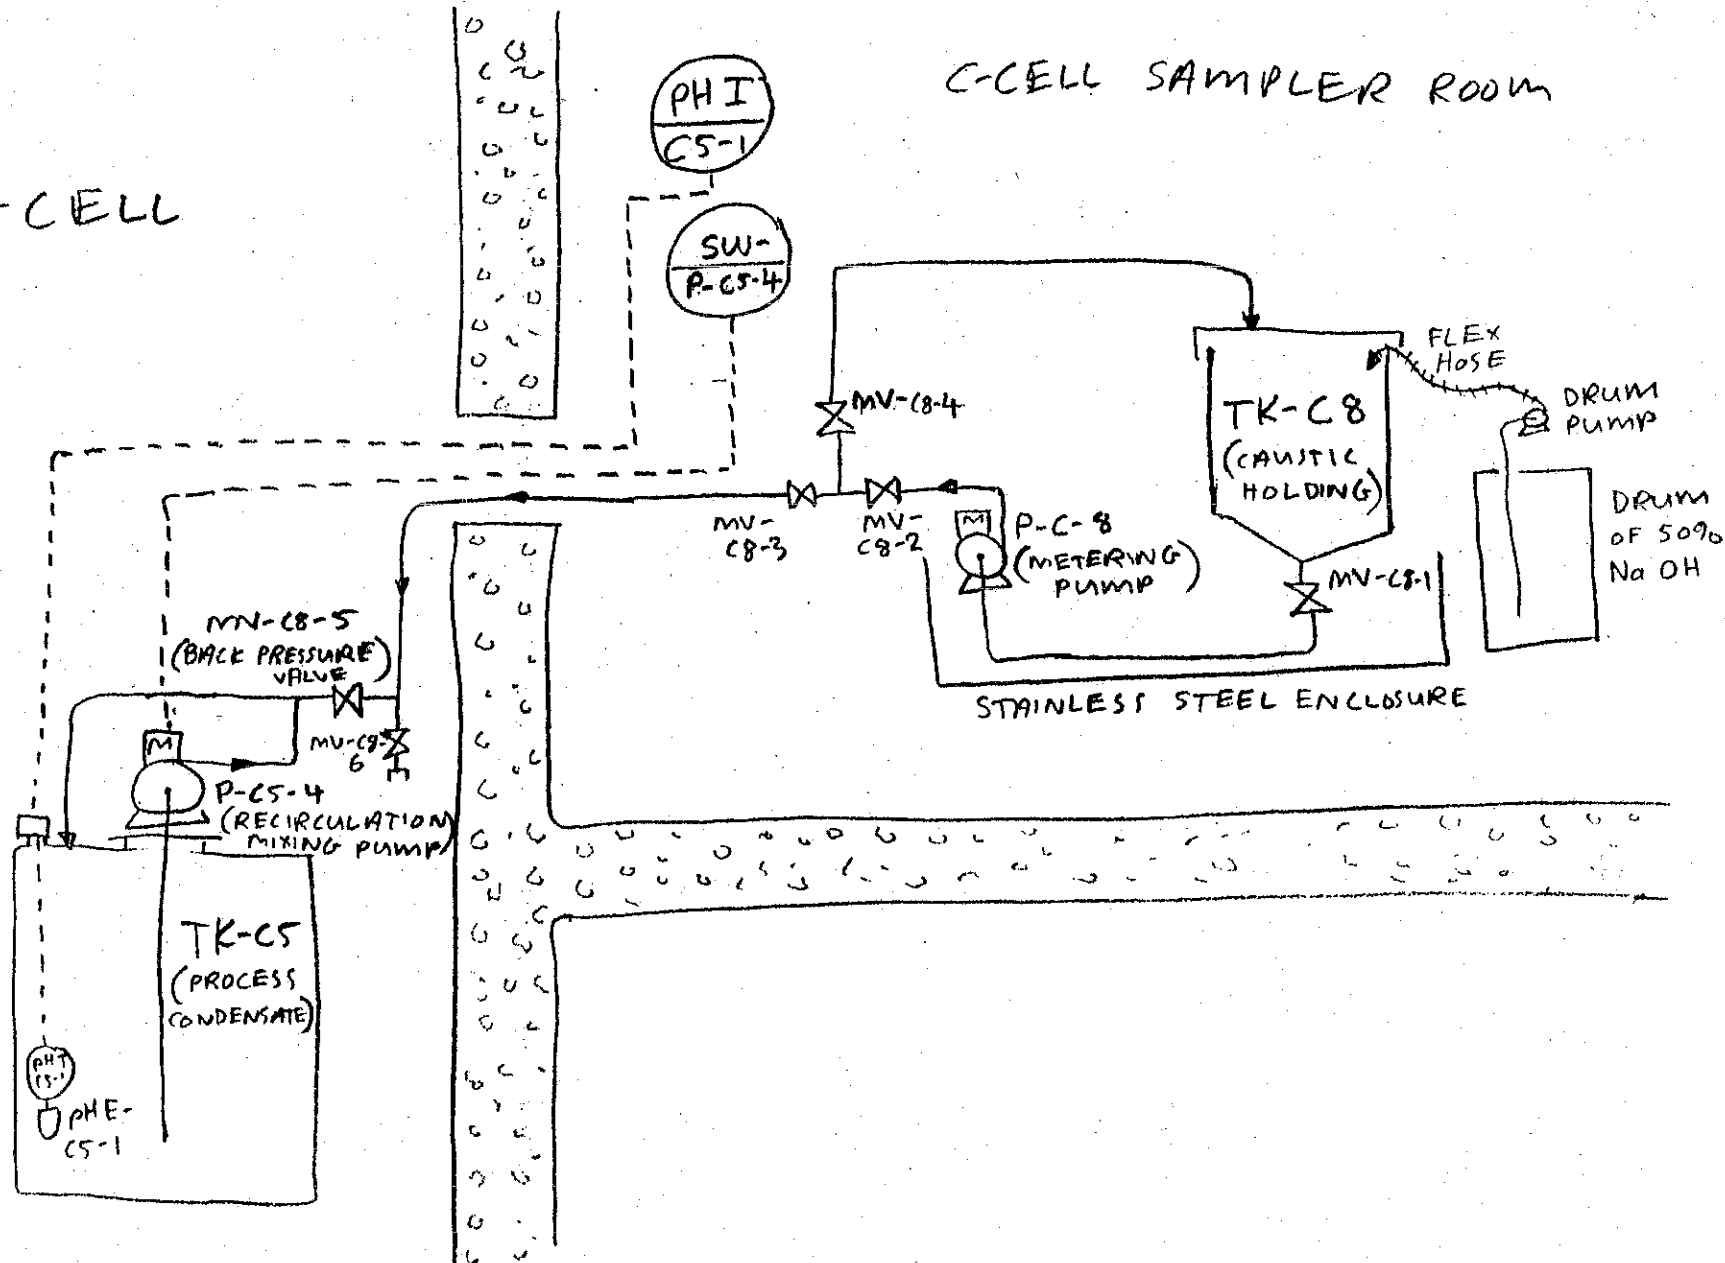 C-CELL SAMPLER ROOM
-CELL
pHI
C5-1
SW-
P-C5-4
FLEX
HOSE
DRUM
PUMP
MV-C8-4
TK-C8
(CAUSTIC
HOLDING)
DRUM
OF 50%
NaOH
MV-
C8-3
MV-
C8-2
M
P-C-8
(METERING
PUMP)
MV-C8-1
STAINLESS STEEL ENCLOSURE
MV-C8-5
(BACK PRESSURE)
VALVE
MV-C8-
6
M
P-C5-4
(RECIRCULATION
MIXING PUMP)
TK-C5
(PROCESS
CONDENSATE)
pHT
C5-1
pHE-
C5-1